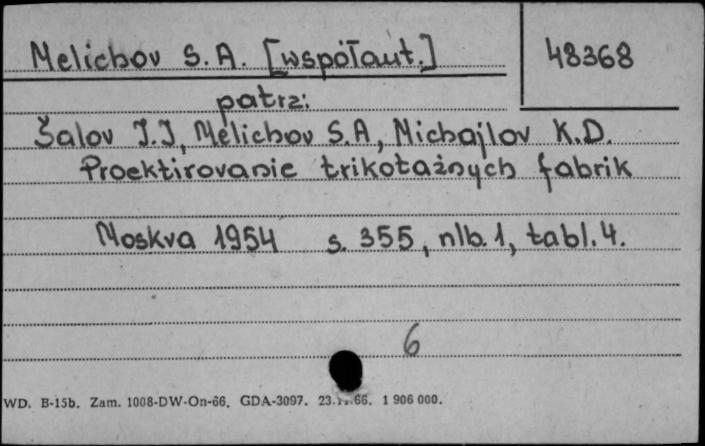 Melichov S. A. [współaut.]
48368
patrz:
Šalov I.I, Melichov S.A, Michajlov K.D.
Proektirovanie trikotażnych fabrik
Moskva 1954 s. 355, nlb. 1, tabl. 4.
6
WD. B-15b. Zam. 1008-DW-On-66. GDA-3097. 1 906 000.